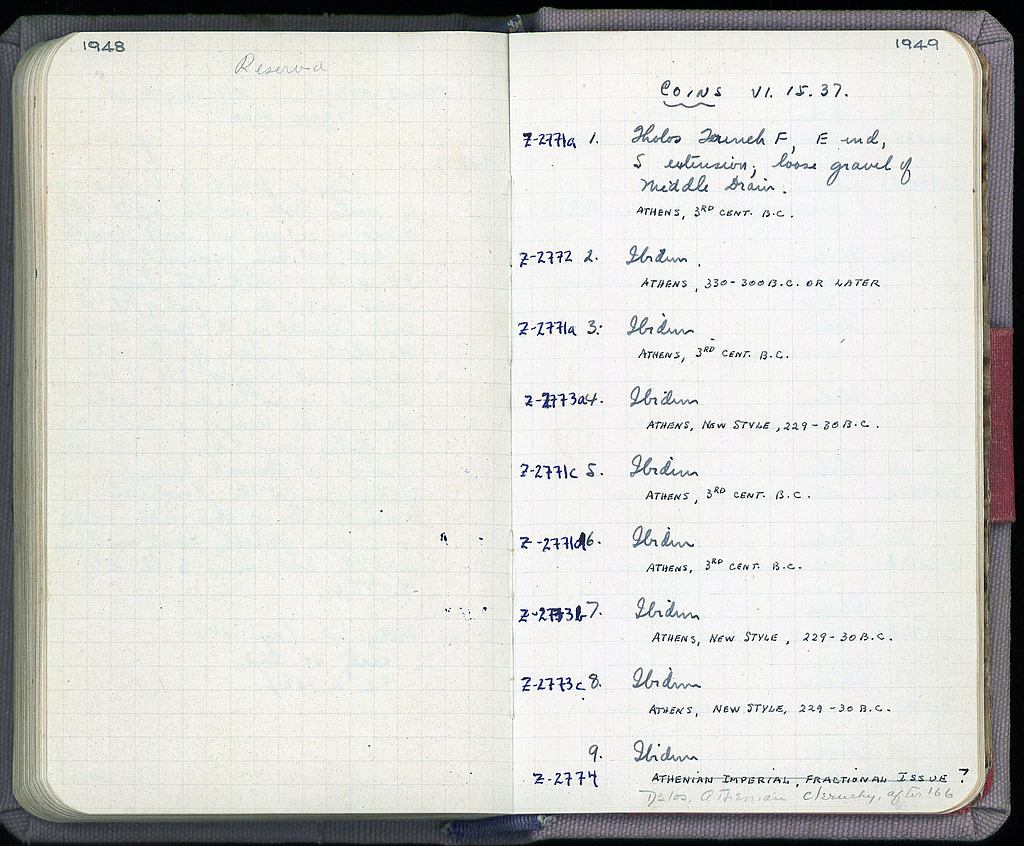 1948
Reserved
1949
COINS VI. 15. 37.
Z-2771a 1. Tholos Trench F, E end,
S extension; loose gravel of
Middle Drain.
ATHENS, 3RD CENT. B.C.
Z-2772 2. Ibidum.
ATHENS, 330-300 B.C. OR LATER
Z-2771a 3. Ibidum
ATHENS, 3RD CENT. B.C.
Z-2773a 4. Ibidum
ATHENS, NEW STYLE, 229-30 B.C.
Z-2771c 5. Ibidum
ATHENS, 3RD CENT. B.C.
Z-2771d 6. Ibidum
ATHENS, 3RD CENT. B.C.
Z-2773b 7. Ibidum
ATHENS, NEW STYLE, 229-30 B.C.
Z-2773c 8. Ibidum
ATHENS, NEW STYLE, 229-30 B.C.
9. Ibidum
Z-2774 ATHENIAN IMPERIAL, FRACTIONAL ISSUE ?
Delos, Athenian cleruchy, after 166